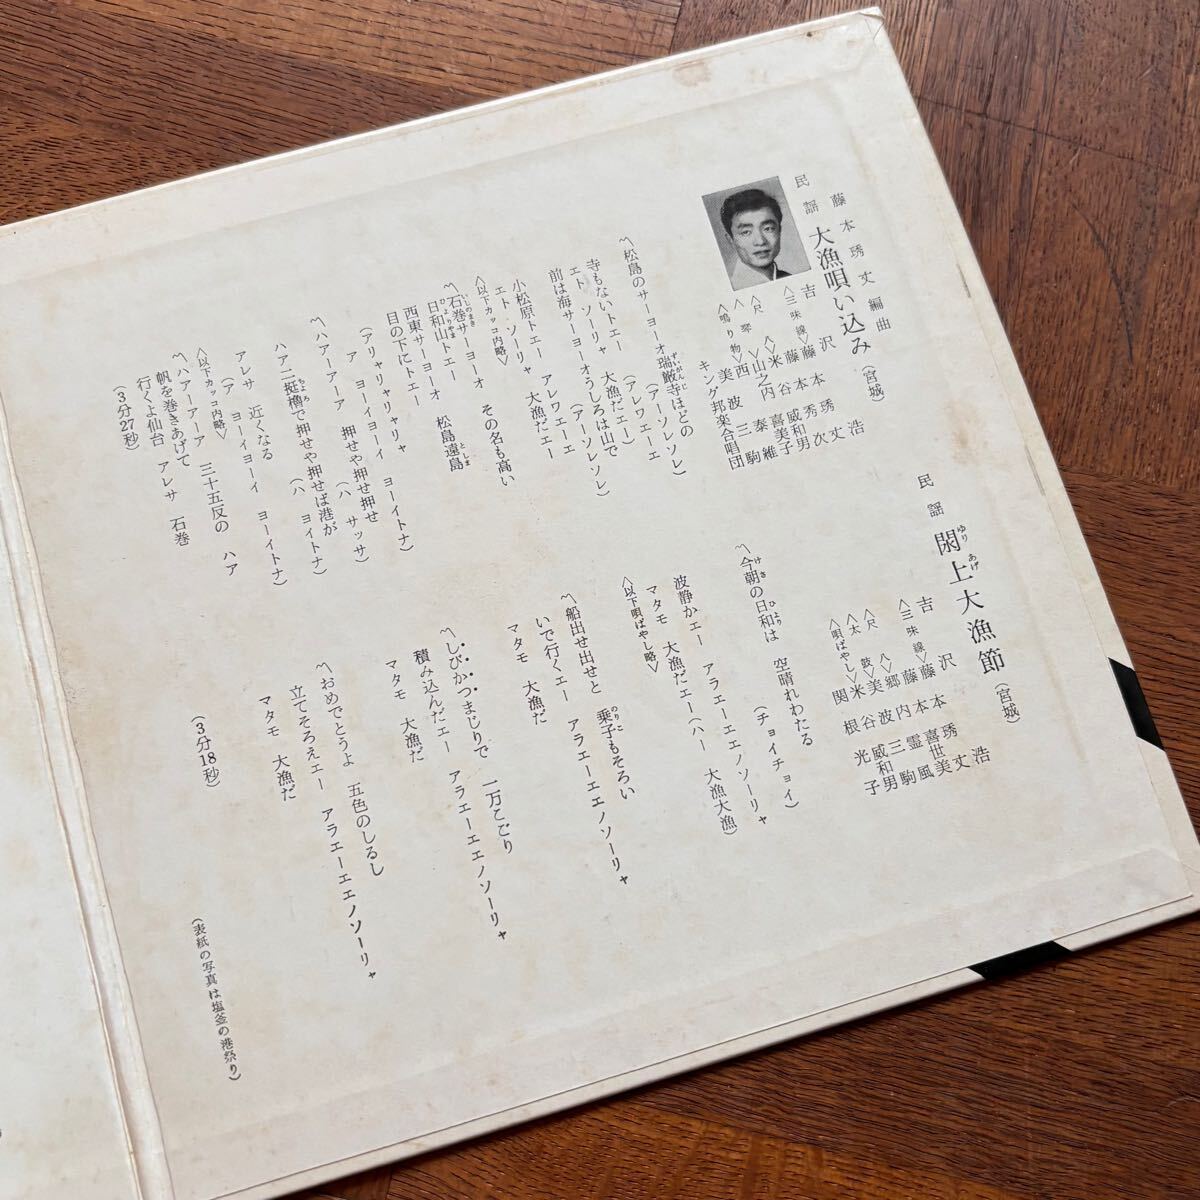 藤本琇丈編曲
民謡 大漁唄い込み（宮城）
吉沢浩
〈三味線〉藤本琇丈
藤本秀次
〈尺八〉米谷威和男
〈琴〉山之内喜美子
〈鳴り物〉西泰維
美波三駒
キング邦楽合唱団
〽松島のサーヨーオ瑞巌寺ほどの
ずいがんじ
（アーソレソレ）
寺もないトエー （アレワエーエ
エト ソーリャ 大漁だエー）
前は海サーヨーオうしろは山で
（アーソレソレ）
小松原トエー アレワエーエ
エト ソーリャ 大漁だエー
〈以下カッコ内略〉
〽石巻サーヨーオ その名も高い
いしのまき
日和山トエー 松島遠島
ひよりやま としま
西東サーヨーオ
目の下にトエー
（アリャリャリャリャ
ア ヨーイヨーイ ヨーイトナ）
〽ハアーアーア 押せや押せ押せ
（ハ サッサ）
ハア二挺櫓で押せや押せば港が
ちょろ
（ハ ヨイトナ）
アレサ 近くなる
（ア ヨーイヨーイ ヨーイトナ）
〈以下カッコ内略〉
〽ハアーアーア 三十五反の ハア
帆を巻きあげて
行くよ仙台 アレサ 石巻
（3分27秒）
民謡 閖上大漁節（宮城）
ゆり あげ
吉沢浩
〈三味線〉藤本琇丈
藤本喜世美
〈尺八〉郷内霊風
〈太鼓〉美波三駒
〈唄ばやし〉米谷威和男
関根光子
〽今朝の日和は 空晴れわたる
けさ ひより
（チョイチョイ）
波静かエー アラエーエエノソーリャ
マタモ 大漁だエー（ハー 大漁大漁）
〈以下唄ばやし略〉
〽船出せ出せと 乗子もそろい
のりこ
いで行くエー アラエーエエノソーリャ
マタモ 大漁だ
〽しびかつまじりで 一万こごり
積み込んだエー アラエーエエノソーリャ
マタモ 大漁だ
〽おめでとうよ 五色のしるし
立てそろえエー アラエーエエノソーリャ
マタモ 大漁だ
（3分18秒）
（表紙の写真は塩釜の港祭り）